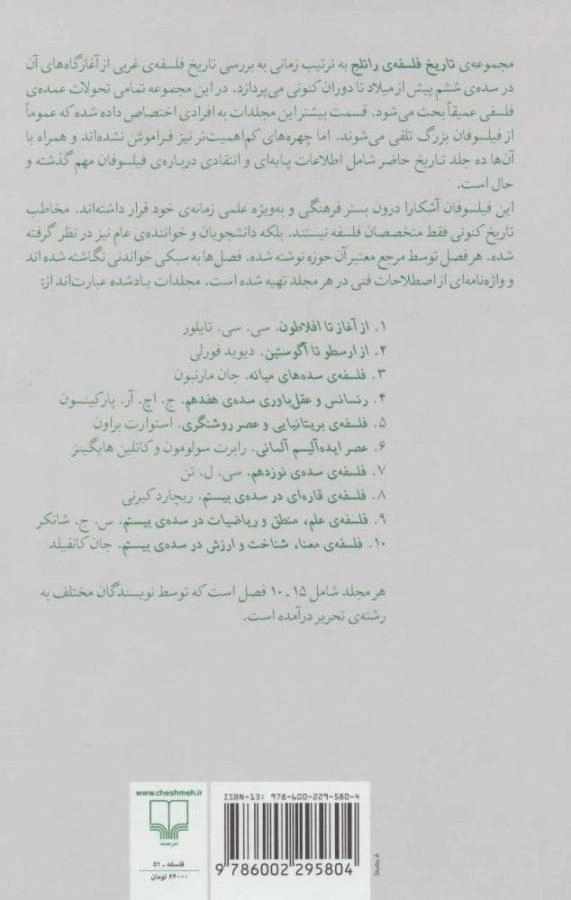 مجموعه‌ی تاریخ فلسفه‌ی راتلج به ترتیب زمانی به بررسی تاریخ فلسفه‌ی غربی از آغازگاه‌های آن
در سده‌ی ششم پیش از میلاد تا دوران کنونی می‌پردازد. در این مجموعه تمامی تحولات عمده‌ی
فلسفی عمیقاً بحث می‌شود. قسمت بیشتر این مجلدات به افرادی اختصاص داده شده که عموماً
از فیلسوفان بزرگ تلقی می‌شوند. اما چهره‌های کم‌اهمیت‌تر نیز فراموش نشده‌اند و همراه با
آن‌ها ده جلد تاریخ حاضر شامل اطلاعات پایه‌ای و انتقادی درباره‌ی فیلسوفان مهم گذشته و
حال است.
این فیلسوفان آشکارا درون بستر فرهنگی و به‌ویژه علمی زمانه‌ی خود قرار داشته‌اند. مخاطب
تاریخ کنونی فقط متخصصان فلسفه نیستند. بلکه دانشجویان و خواننده‌ی عام نیز در نظر گرفته
شده. هر فصل توسط مرجع معتبر آن حوزه نوشته شده. فصل‌ها به سبکی خواندنی نگاشته شده‌اند
و واژه‌نامه‌ای از اصطلاحات فنی در هر مجلد تهیه شده است. مجلدات یادشده عبارت‌اند از:
۱. از آغاز تا افلاطون. سی. سی. تایلور
۲. از ارسطو تا آگوستین. دیوید فورلی
۳. فلسفه‌ی سده‌های میانه. جان مارنبون
۴. رنسانس و عقل‌باوری سده‌ی هفدهم. ج. اچ. آر. پارکینسون
۵. فلسفه‌ی بریتانیایی و عصر روشنگری. استوارت براون
۶. عصر ایده‌آلیسم آلمانی. رابرت سولومون و کاتلین هایگینز
۷. فلسفه‌ی سده‌ی نوزدهم. سی. ل. تن
۸. فلسفه‌ی قاره‌ای در سده‌ی بیستم. ریچارد کیرنی
۹. فلسفه‌ی علم، منطق و ریاضیات در سده‌ی بیستم. س. ج. شانکر
۱۰. فلسفه‌ی معنا، شناخت و ارزش در سده‌ی بیستم. جان کانفیلد
هر مجلد شامل ۱۵ ـ ۱۰ فصل است که توسط نویسندگان مختلف به
رشته‌ی تحریر درآمده است.
www.cheshmeh.ir
نشر چشمه
فلسفه ـ ۵۱
۶۴۰۰۰ تومان
ISBN-13: 978-600-229-580-4
9 786002 295804
Studio A